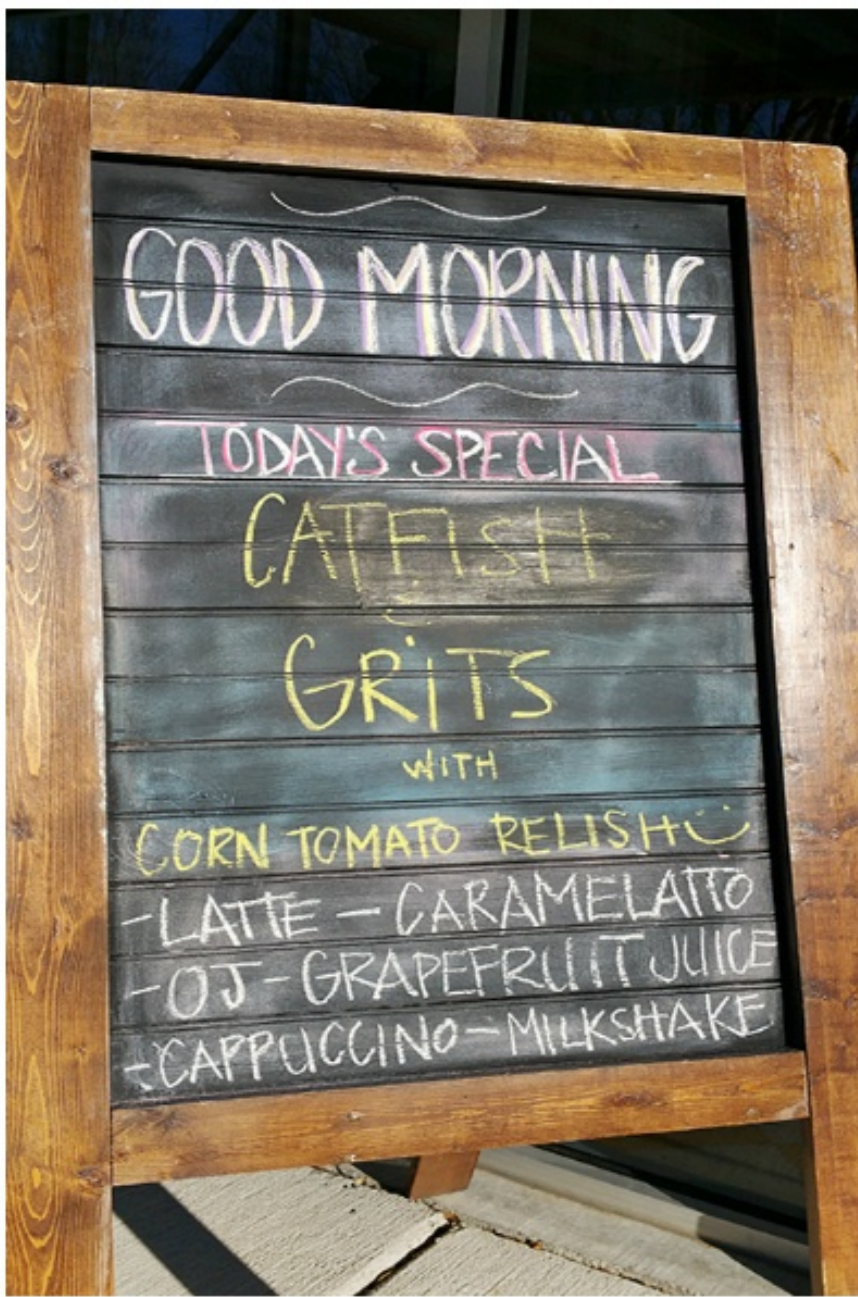 GOOD MORNING
TODAY'S SPECIAL
CATFISH
GRITS
WITH
CORN TOMATO RELISH
-LATTE - CARAMELATTO
-OJ - GRAPEFRUIT JUICE
-CAPPUCCINO - MILKSHAKE